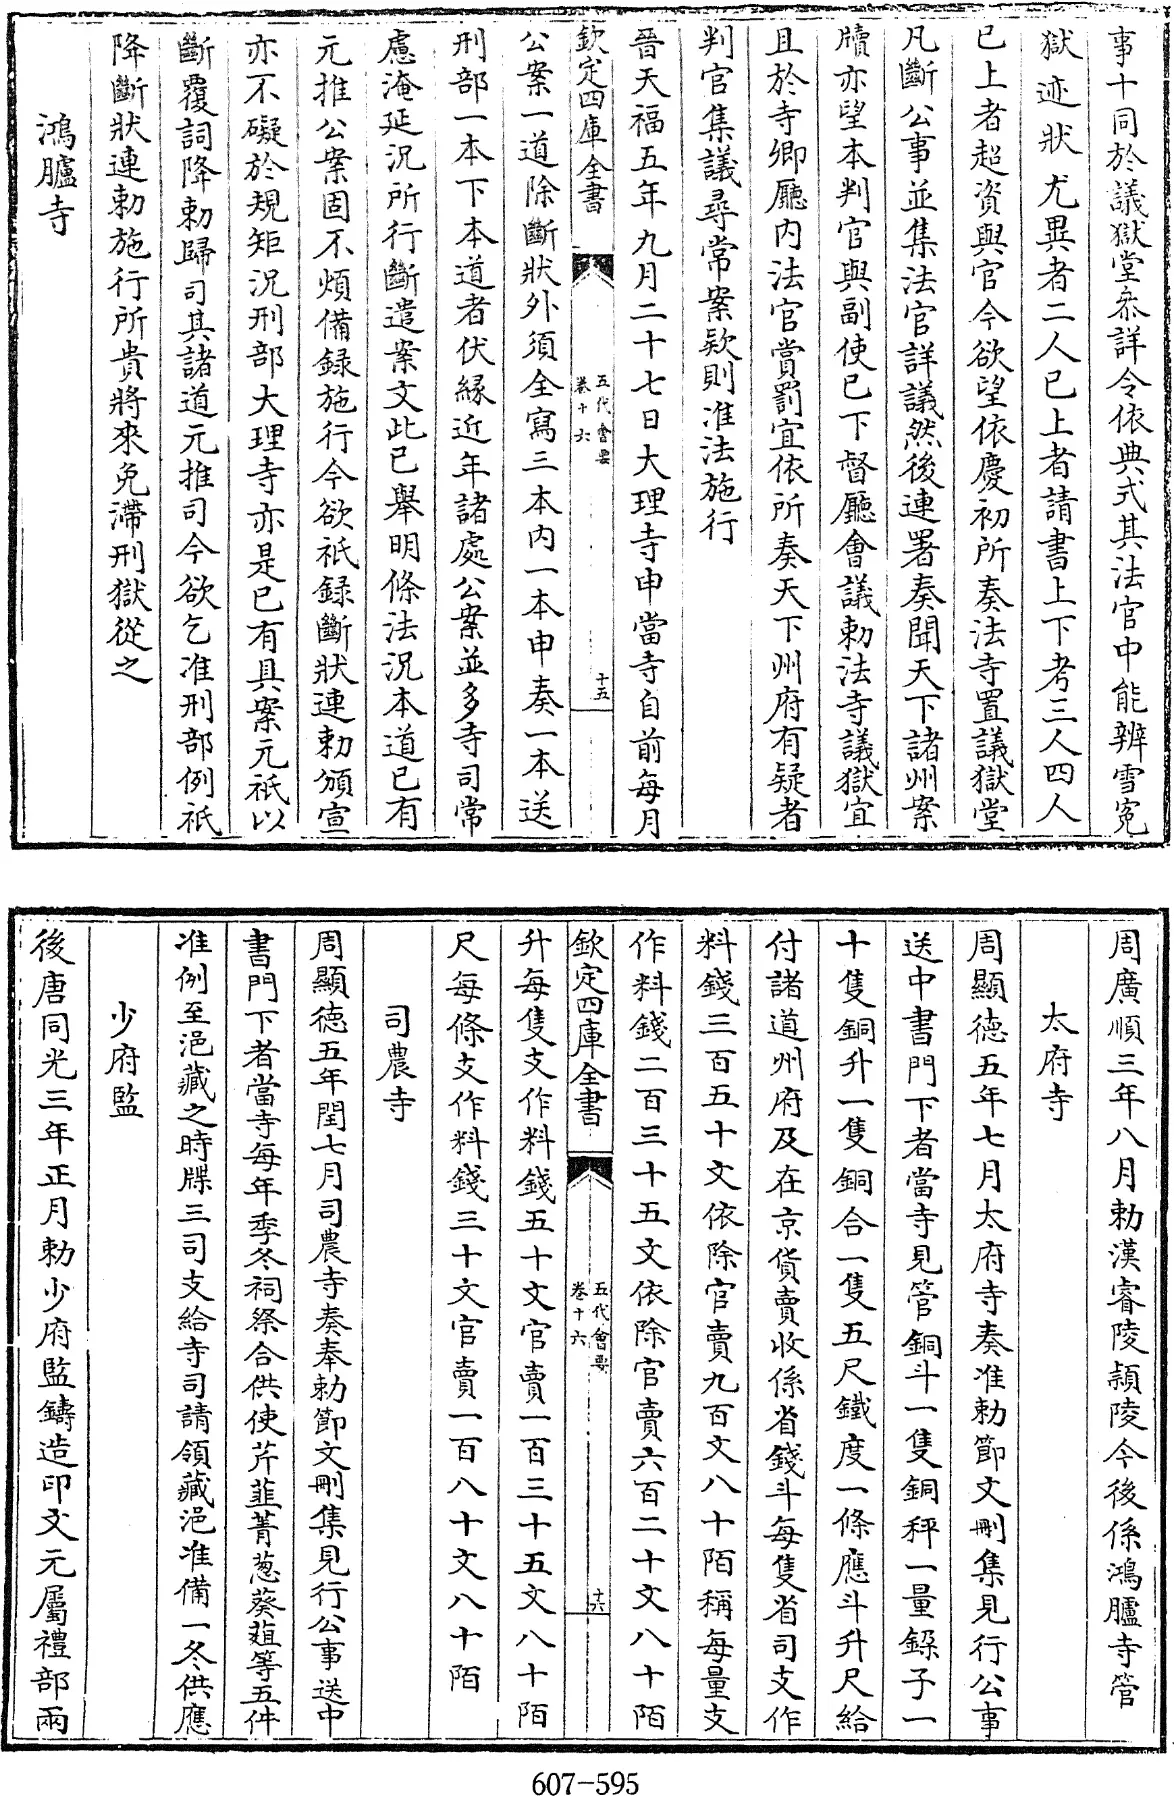 事十同於議獄堂叅詳令依典式其法官中能辨雪寃
獄迹狀尤異者二人已上者請書上下考三人四人
已上者超資與官今欲望依慶初所奏法寺置議獄堂
凡斷公事並集法官詳議然後連署奏聞天下諸州案
牘亦望本判官與副使已下督廳會議勅法寺議獄宜
且於寺卿廳內法官賞罰宜依所奏天下州府有疑者
判官集議尋常案欵則准法施行
晉天福五年九月二十七日大理寺申當寺自前每月
欽定四庫全書
五代會要
卷十六
十五
公案一道除斷狀外須全寫三本內一本申奏一本送
刑部一本下本道者伏緣近年諸處公案並多寺司常
慮淹延況所行斷遣案文此已舉明條法況本道已有
元推公案固不煩備録施行今欲祇録斷狀連勅頒宣
亦不礙於規矩況刑部大理寺亦是已有具案元祇以
斷覆詞降勅歸司其諸道元推司今欲乞准刑部例祇
降斷狀連勅施行所貴將來免滯刑獄從之
鴻臚寺
周廣順三年八月勅漢睿陵潁陵今後係鴻臚寺管
太府寺
周顯徳五年七月太府寺奏准勅節文刪集見行公事
送中書門下者當寺見管銅斗一隻銅秤一量鎵子一
十隻銅升一隻銅合一隻五尺鐵度一條應斗升尺給
付諸道州府及在京貨賣收係省錢斗每隻省司支作
料錢三百五十文依除官賣九百文八十陌稱每量支
作料錢二百三十五文依除官賣六百二十文八十陌
欽定四庫全書
五代會要
卷十六
十六
升每隻支作料錢五十文官賣一百三十五文八十陌
尺每條支作料錢三十文官賣一百八十文八十陌
司農寺
周顯徳五年閏七月司農寺奏奉勅節文刪集見行公事送中
書門下者當寺每年季冬祠祭合供使芹韮菁葱葵葅等五件
准例至浥藏之時牒三司支給寺司請領藏浥准備一冬供應
少府監
後唐同光三年正月勅少府監鑄造印文元屬禮部兩
607-595